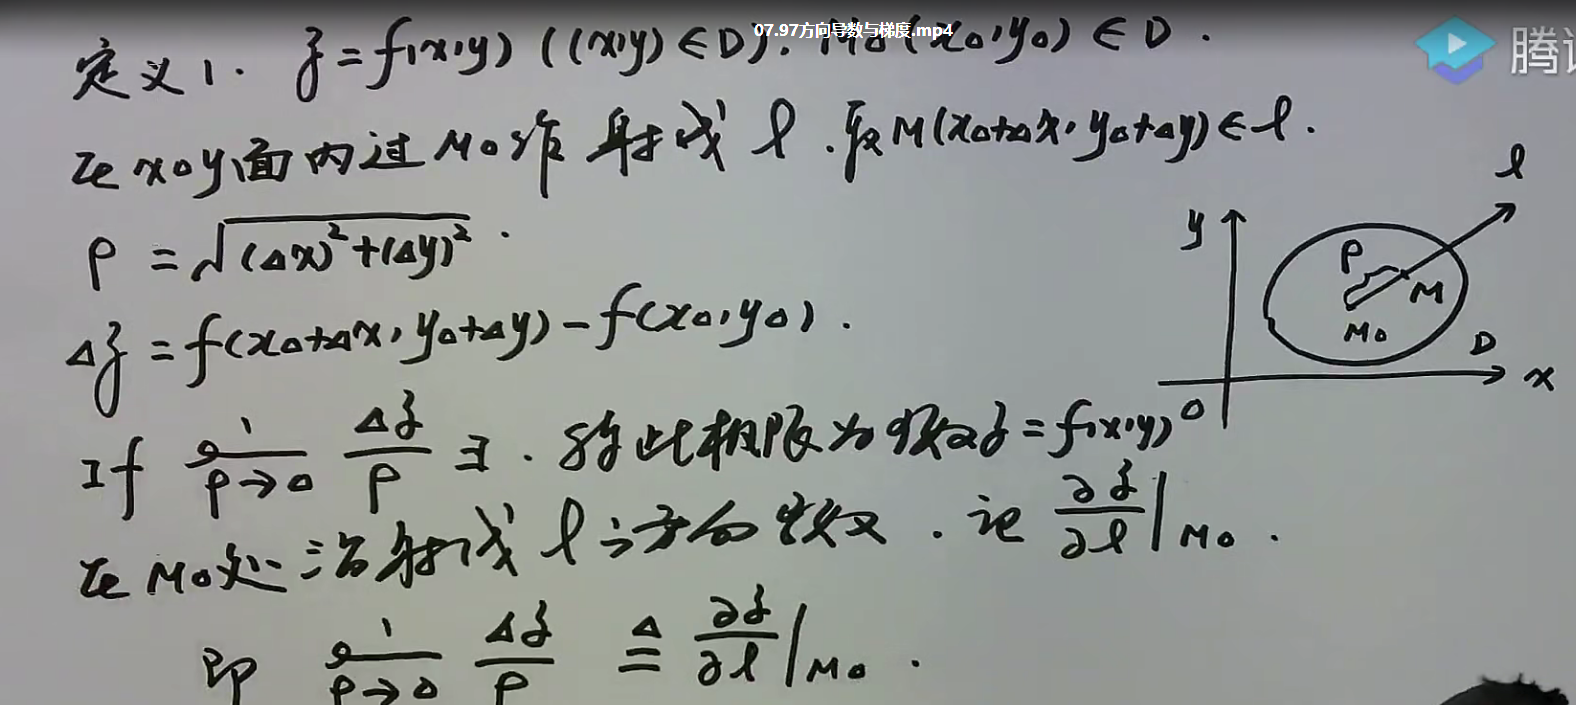 07.97方向导数与梯度.mp4
腾讯
定义1. z=f(x,y) ((x,y)∈D). M₀(x₀,y₀)∈D.
在xoy面内过M₀作射线l.取M(x₀+Δx,y₀+Δy)∈l.
ρ=√((Δx)²+(Δy)²).
Δz=f(x₀+Δx,y₀+Δy)-f(x₀,y₀).
If lim_{ρ→0} Δz/ρ ∃. 称此极限为函数z=f(x,y)
在M₀处沿射线l的方向导数.记 ∂z/∂l|M₀.
即 lim_{ρ→0} Δz/ρ ≜ ∂z/∂l|M₀.
l
y
ρ
M
M₀
D
x
0